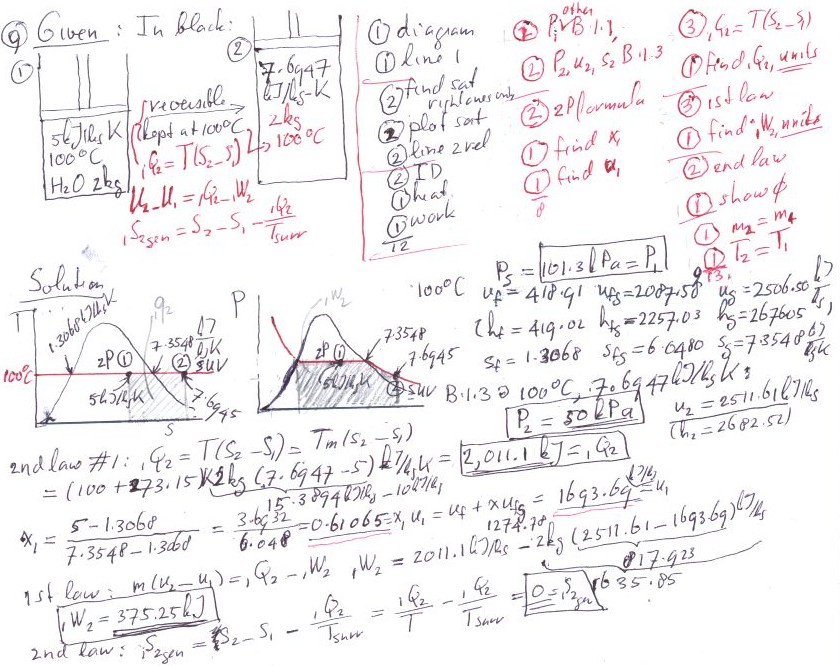 ⑨ Given: In black:
①
5kJ/kgK
100°C
H₂O 2kg
reversible
kept at 100°C
₁Q₂ = T(S₂-S₁)
U₂-U₁ = ₁Q₂-₁W₂
₁S₂gen = S₂-S₁ - ₁Q₂/Tsurr
②
7.6947
kJ/kg-K
2kg
100°C
① diagram
① line 1
② find sat
② plot sat
② line 2 rel
② ID
① heat
① work
12
other
② P₁ B.1.1
② P₂, u₂, s₂ B.1.3
② 2P formula
① find x₁
① find u₁
8
③ ₁Q₂ = T(S₂-S₁)
① find ₁Q₂, units
③ 1st law
① find ₁W₂, units
② 2nd law
① show ϕ
① m₂ = m₁
① T₂ = T₁
13
Solution
T
100°C
1.3068kJ/kgK
₁q₂
7.3548 kJ/kgK
2P ①
② SHV
5kJ/kgK
7.6945
S
P
₁w₂
2P ①
5kJ/kgK
7.3548
7.6945
② SHV
100°C
Ps = 101.3 kPa = P₁
uf = 418.91 ufg = 2087.58 ug = 2506.50 kJ/kg
(hf = 419.02 hfg = 2257.03 hg = 2676.05 kJ/kg)
sf = 1.3068 sfg = 6.0480 sg = 7.3548 kJ/kgK
B.1.3 @ 100°C, 7.6947 kJ/kgK:
P₂ = 50 kPa
u₂ = 2511.61 kJ/kg
(h₂ = 2682.52)
2nd law #1: ₁Q₂ = T(S₂-S₁) = Tm(s₂-s₁)
= (100+273.15)K 2kg (7.6947-5) kJ/kgK = 2,011.1 kJ = ₁Q₂
15.3894kJ/kg - 10kJ/kg
x₁ = (5-1.3068)/(7.3548-1.3068) = 3.6932/6.048 = 0.61065 = x₁ u₁ = uf + x ufg = 1693.69 kJ/kg = u₁
1274.78
1st law: m(u₂-u₁) = ₁Q₂-₁W₂ ₁W₂ = 2011.1 kJ/kg - 2kg (2511.61-1693.69) kJ/kg
817.923
1635.85
₁W₂ = 375.25 kJ
2nd law: ₁S₂gen = S₂-S₁ - ₁Q₂/Tsurr = ₁Q₂/T - ₁Q₂/Tsurr = 0 = ₁S₂gen